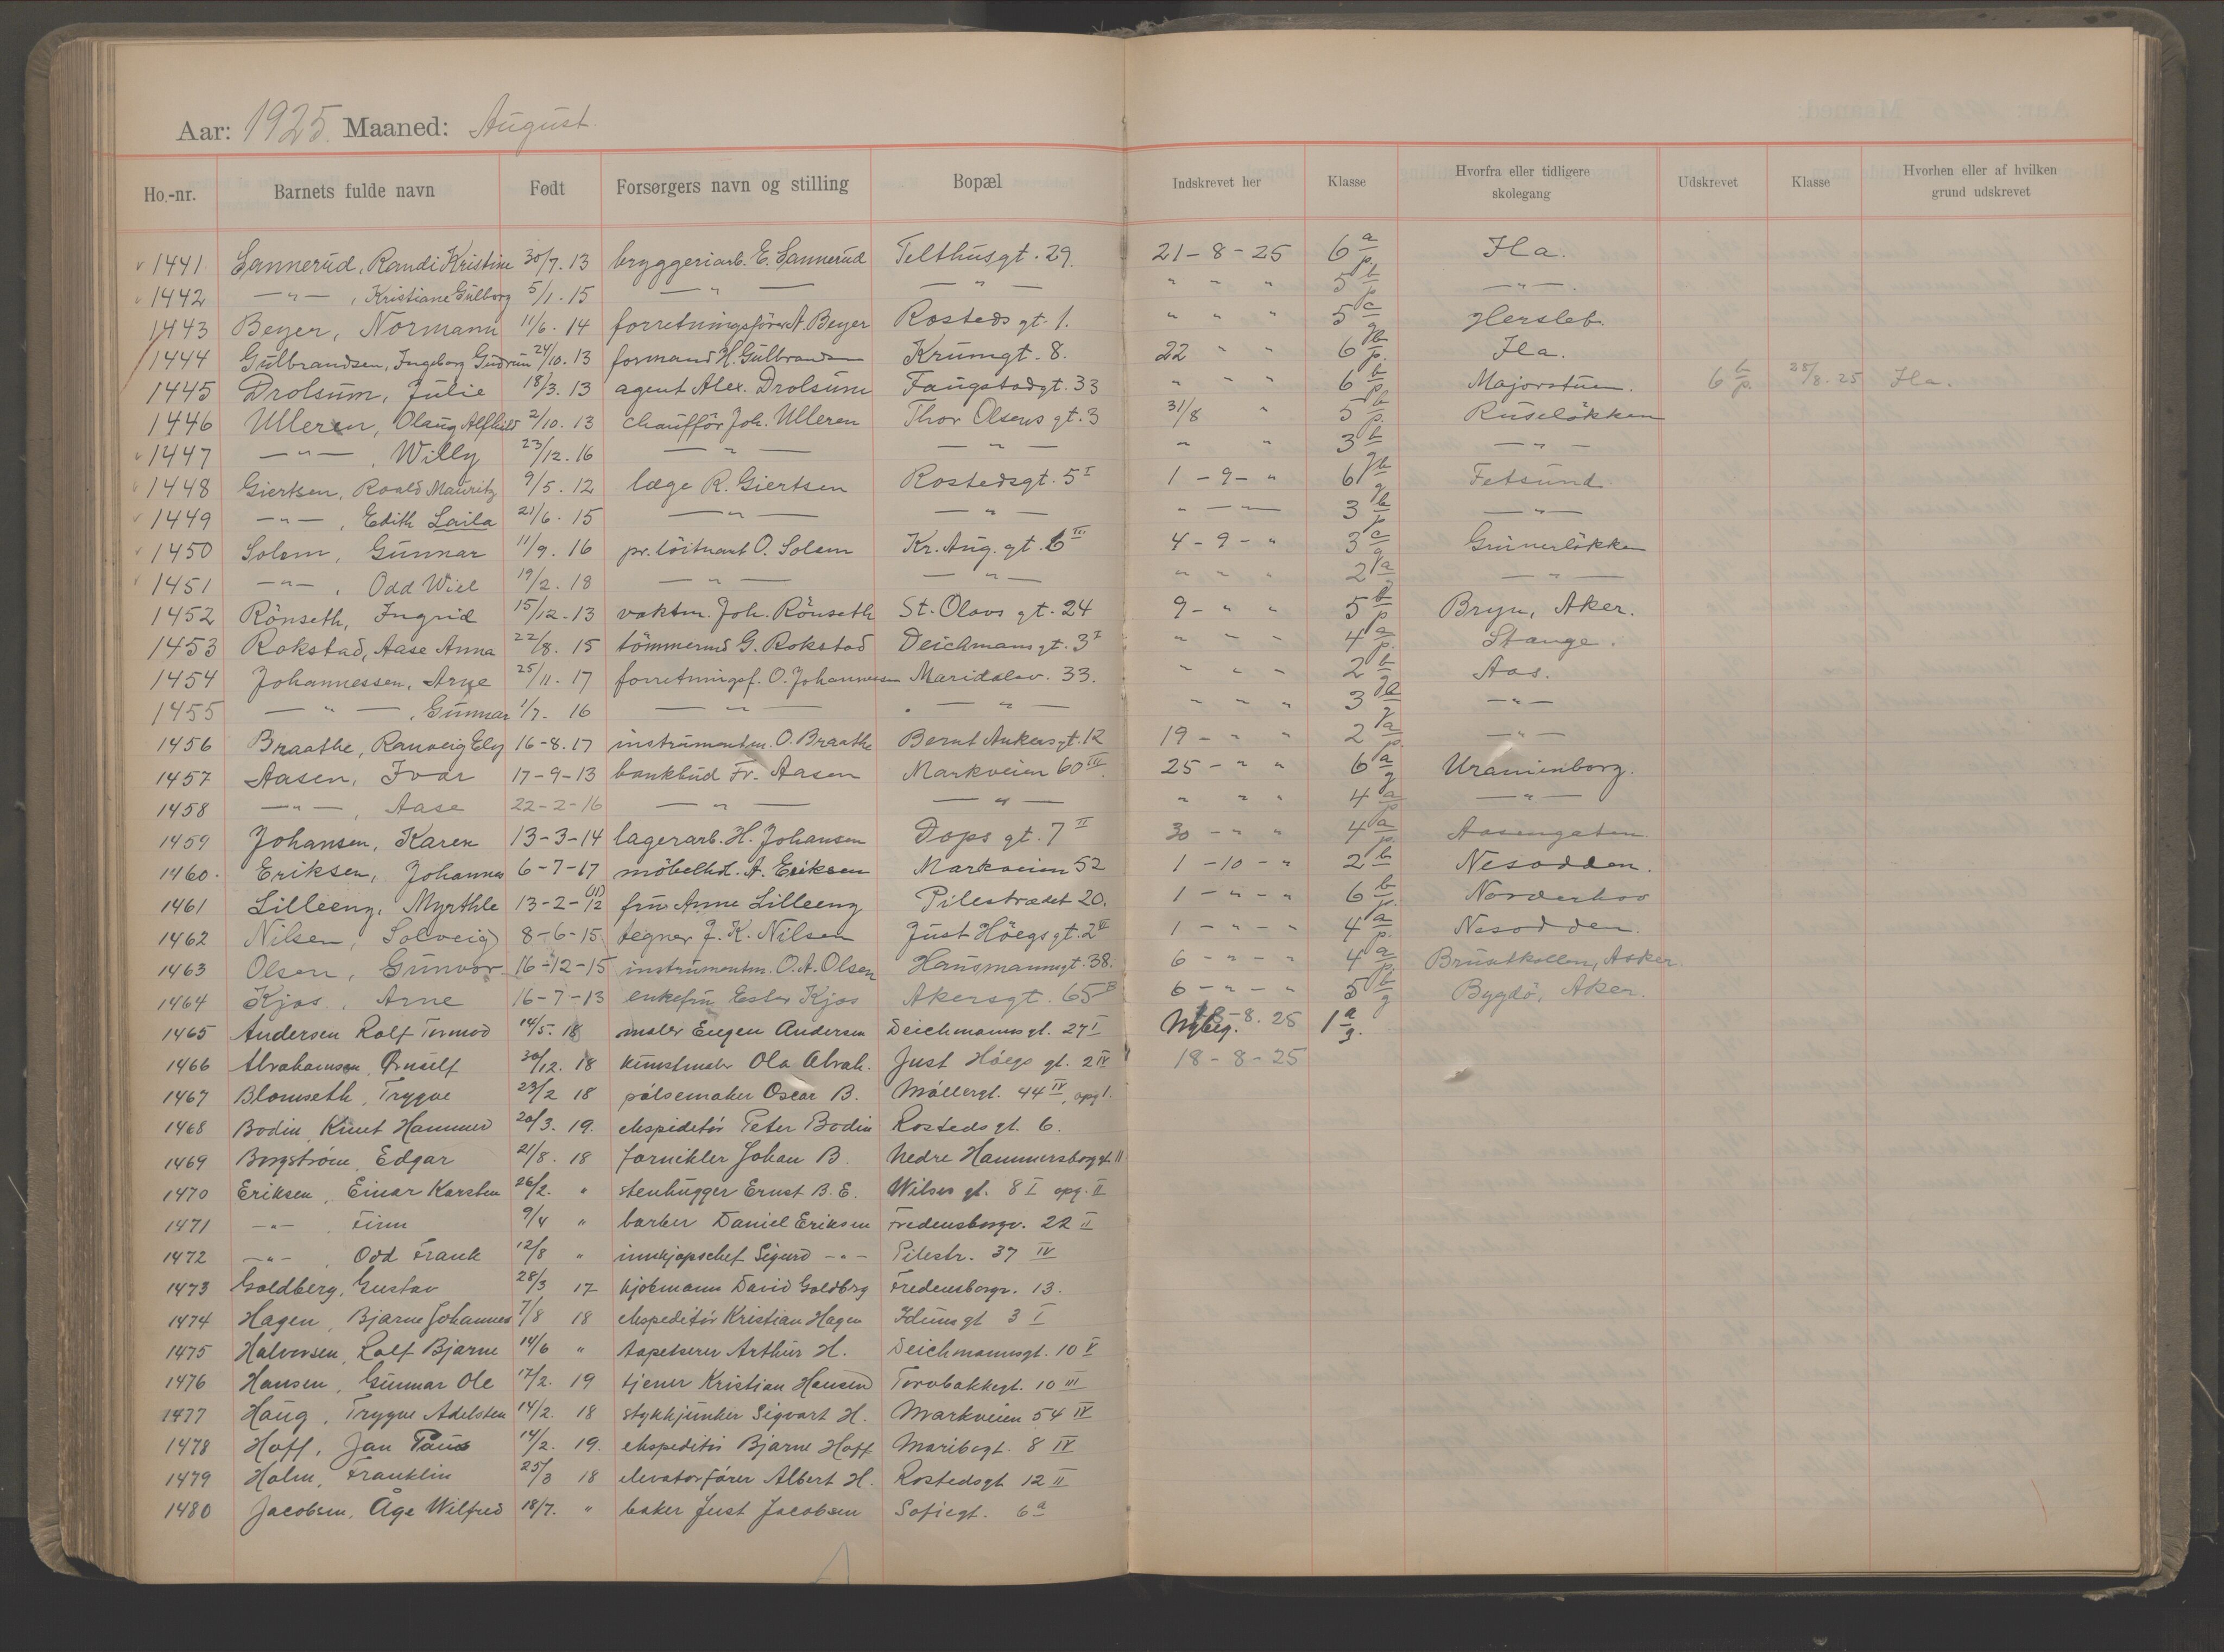 Aar: 1925. Maaned: August.
Ho.-nr. Barnets fulde navn Født Forsørgers navn og stilling Bopæl Indskrevet her Klasse Hvorfra eller tidligere skolegang Udskrevet Klasse Hvorhen eller af hvilken grund udskrevet
1441 Sannerud, Randi Kristine 30/7. 13 bryggeriarb. E. Sannerud Telthusgt. 29. 21-8-25 6 a/p. Ila.
1442 —"—, Kristiane Gulborg 5/1. 15 —"— —"— " " " 5 b/p —"—.
1443 Beyer, Normann 11/6. 14 forretningsfører A. Beyer Rosteds gt. 1. " " " 5 c Hersleb.
1444 Gulbrandsen, Ingeborg Gudrun 24/10. 13 formand H. Gulbrandsen Krumgt. 8. 22 " " 6 b/p. Ila.
1445 Drolsum, Julie 18/3. 13 agent Alex. Drolsum Faugstadgt. 33 " " " 6 b/p. Majorstuen. 6 b/p. 28/8. 25 Ila.
1446 Ulleren, Olaug Alfhild 2/10. 13 chauffør Joh. Ulleren Thor Olsens gt. 3 31/8 " 5 b/p. Ruseløkken
1447 —"—, Willy 23/12. 16 —"— —"— " " 3 b —"—
1448 Giertsen, Roald Mauritz 9/5. 12 læge R. Giertsen Rostedsgt. 5 I 1 - 9 - " 6 b/g Fetsund
1449 —"—, Edith Laila 21/6. 15 —"— —"— " — — 3 b/p —"—
1450 Solem, Gunnar 11/9. 16 pr. löitnant O. Solem Kr. Aug. gt. 6 III 4 - 9 - " 3 c/g Grünerløkka
1451 —"—, Odd Wiel 19/2. 18 —"— —"— " " " 2 a —"—
1452 Rönseth, Ingrid 15/12. 13 vaktm. Joh. Rönseth St. Olavs gt. 24 9 - " " 5 b/p Bryn, Aker.
1453 Rokstad, Aase Anna 22/8. 15 tömmermd G. Rokstad Deichmansgt. 3 I " " " 4 a/p. Stange.
1454 Johannessen, Arne 25/11. 17 forretningsf. O. Johannessen Maridalsv. 33. " " " 2 b Aas.
1455 —"—, Gunnar 1/7. 16 —"— —"— " " " 3 b/g —"—
1456 Braathe, Ranveig Ely 16-8. 17 instrumentm. O. Braathe Bernt Ankersgt. 12 19 - " " 2 a/p. —"—
1457 Aasen, Ivar 17-9-13 bankbud Fr. Aasen Markveien 60 III. 25 - " " 6 a/g Uranienborg.
1458 —"—, Aase 22-2-16 —"— —"— " " " 4 a/p. —"—
1459 Johansen, Karen 13-3-14 lagerarb. H. Johansen Dops gt. 7 II 30 - " " 4 a/p. Aasengaten
1460. Eriksen, Johannes 6-7-17 möbelhdl. A. Eriksen Markveien 52 1 - 10 - " 2 b Nesodden.
1461 Lilleeng, Myrthle 13-2-12 (11) fru Anne Lilleeng Pilestrædet 20. 1 - " - " 6 b/p. Norderhov
1462 Nilsen, Solveig 8-6-15 tegner J. K. Nilsen Just Höegs gt. 2 II 1 - " - " 4 a/p. Nesodden.
1463 Olsen, Gunvor 16-12-15 instrumentm. O. A. Olsen Hausmannsgt. 38. 6 - " - " 4 a/p. Bruntkollen, Asker.
1464 Kjos, Arne 16-7-13 enkefru Ester Kjos Akersgt. 65 B 6 - " - " 5 b/g Bygdö, Aker.
1465 Andersen Rolf Tormod 14/5. 18 maler Eugen Andersen Deichmanns gt. 27 I Nybeg. 18-8. 25 1 a/g.
1466 Abrahamsen, Ørnulf 30/12. 18 kunstmaler Ola Abrah. Just Höegs gt. 2 IV 18-8-25
1467 Blomseth, Trygve 23/2 18 pölsemaker Oscar B. Møllergt. 44 IV, opg 1.
1468 Bodin, Knut Hammer 20/3. 19. ekspeditör Peter Bodin Rosteds gt. 6.
1469 Borgström, Edgar 21/8. 18 fornikler Johan B. Nedre Hammersborg gt. 11
1470 Eriksen, Einar Karsten 26/2. " stenhugger Ernst B. E. Wilses gt. 8 I opg. II
1471 —"—, Finn 9/4 " barber Daniel Eriksen Fredensborgv. 22 II
1472 —"—, Odd Frank 12/8 " innkjøpschef Sigurd —"— Pilestr. 37 IV
1473 Goldberg, Gustav 28/3 17 kjøbmann David Goldberg Fredensborgv. 13.
1474 Hagen, Bjarne Johannes 7/8 18 ekspeditör Kristian Hagen Idunsgt 3 I
1475 Halvorsen, Rolf Bjarne 14/6 " tapetserer Arthur H. Deichmannsgt. 10 V
1476 Hansen, Gunnar Ole 17/2. 19 tjener Kristian Hansen Torvbakkegt. 10 III
1477 Haug, Trygve Adelsten 14/2. 18 stykkjunker Sigvart H. Markveien 54 IV
1478 Hoff, Jan Paus 14/2. 19. ekspeditör Bjarne Hoff Maribogt. 8 IV
1479 Holm, Franklin 25/3 18 elevatorfører Albert H. Rostedsgt 12 II
1480 Jacobsen, Åge Wilfred 18/7. " baker Just Jacobsen Sofiegt. 6 a